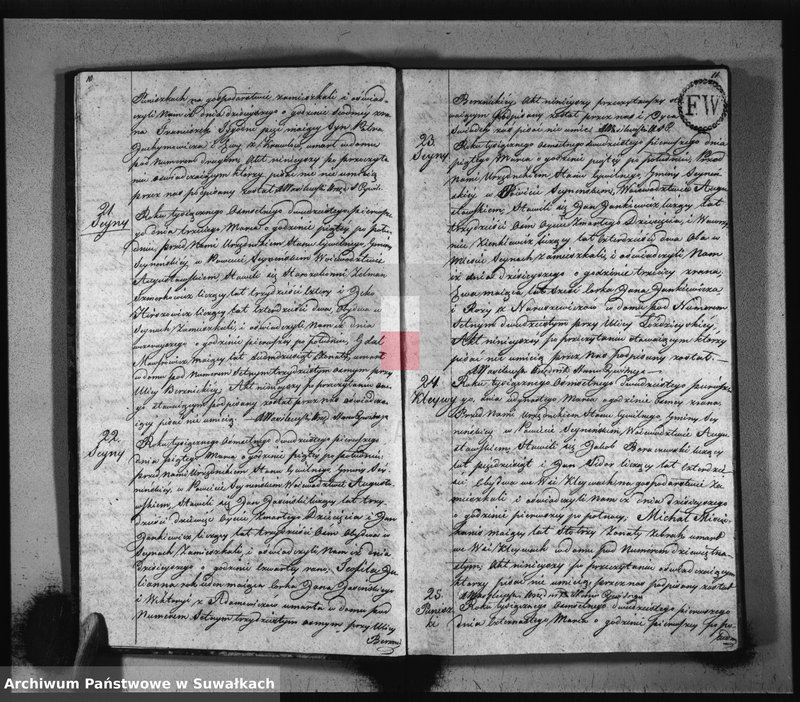 10
Punieszkach na gospodarstwie zamieszkali i oświad-
czyli Nam iż dnia dzisieyszego o godzinie siódmey zra-
na Franciszek tygodni pięć maiący Syn Piotra
umarł w domu
pod Numerem drugim, Akt ninieyszy po przeczyta-
niu oświadczaiącym którzy pisać nie umieią
przez nas podpisany został
21.
Seyny
Roku tysiącznego ośmsetnego dwudziestego pierwsze-
go dnia trzeciego Marca o godzinie piątey po połu-
dniu, przed Nami Urzędnikiem Stanu Cywilnego Gminy
Seynskiey w Powiecie Seynenskim Woiewodztwie
Augustowskim Stawili się Starozakonni Zelman
liczący lat trzydzieści cztery i Icko
Hirszowicz liczący lat czterdzieści dwa, Obydwa w
Seynach Zamieszkali, i oświadczyli Nam iż dnia
wczorayszego o godzinie pierwszey po południu, Gdal
maiący lat Siedmdziesiąt Żonaty, umarł
w domu pod Numerem Setnym trzydziestym osmym przy
Ulicy Berznickiey. Akt ninieyszy po przeczytaniu one-
go stawaiącym podpisany został przez nas oświadcza-
iący pisać nie umieią.
22.
Seyny
Roku tysiącznego Ośmsetnego dwudziestego pierwszego
dnia piątego Marca o godzinie piątey po południu
przed Nami Urzędnikiem Stanu Cywilnego Gminy Sey-
nenskiey, w Powiecie Seynenskim Woiewodztwie Augusto-
wskim, Stawili się Jan Jasinski liczący lat trzy-
dzieści dziewięć Oyciec zmarłego Dziecięcia i Jan
Jankiewicz liczący lat trzydzieści Ośm Obydwa w
Seynach Zamieszkali i oświadczyli Nam iż dnia
dzisieyszego o godzinie czwartey rano, Teofila Ju-
lianna rok ieden maiąca Corka Jana Jasinskiego
i Wiktoryi z Adamowiczow umarła w domu pod
Numerem Setnym trzydziestym osmym, przy Ulicy
Berzni-
11
FW
Berznickiey, Akt ninieyszy przeczytawszy
podpisany został przez nas i Oyca
Świadek zaś pisać nie umie
23.
Seyny
Roku tysiącznego Osmsetnego dwudziestego pierwszego dnia
piątego Marca o godzinie piątey po południu, Przed
Nami Urzędnikiem Stanu Cywilnego, Gminy Seynen-
skiey w Powiecie Seynenskim, Woiewodztwie Augu-
stowskim, Stawili się Jan Jankiewicz liczący lat
trzydzieści Osm Oyciec zmarłego Dziecięcia, i Wawrzy-
niec Zienkiewicz liczący lat Czterdzieści dwa Oba w
Mieście Seynach Zamieszkali i oświadczyli Nam
iż dnia dzisieyszego o godzinie trzeciey zrana,
Ewa maiąca lat Sześć Corka Jana Jankiewicza
i Rozy z Naruszewiczow w domu pod Numerem
Setnym dwudziestym przy Ulicy
Akt ninieyszy po przeczytaniu stawaiącym którzy
pisać nie umieią przez Nas podpisany został. –
Urzędnik Stanu Cywilnego
24.
Kleywy
Roku tysiącznego Osmsetnego dwudziestego pierwsze-
go, dnia iedynastego Marca o godzinie Osmey zrana
Przed Nami Urzędnikiem Stanu Cywilnego Gminy Sey-
nenskiey w Powiecie Seynenskim, Woiewodztwie Augu-
stowskim, Stawili się Jakub Boraszewski liczący
lat pięćdziesiąt i Jan Sidor liczący lat czterdzie-
ści Obydwa we Wsi Kleywach na gospodarstwie Za-
mieszkali i oświadczyli Nam iż dnia dzisieyszego
o godzinie pierwszey po północy, Michał
maiący lat Sto trzy Żonaty Żebrak umarł
we Wsi Kleywach w domu pod Numerem dziewiętna-
stym, Akt ninieyszy po przeczytaniu oświadczaiącym
którzy pisać nie umieią przez nas podpisany został
25.
Roku tysiącznego Osmsetnego dwudziestego pierwszego
dnia Czternastego Marca o godzinie pierwszey po po-
Archiwum Państwowe w Suwałkach